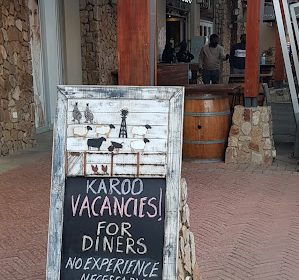 KAROO
VACANCIES!
FOR
DINERS
NO EXPERIENCE
NECESSARY